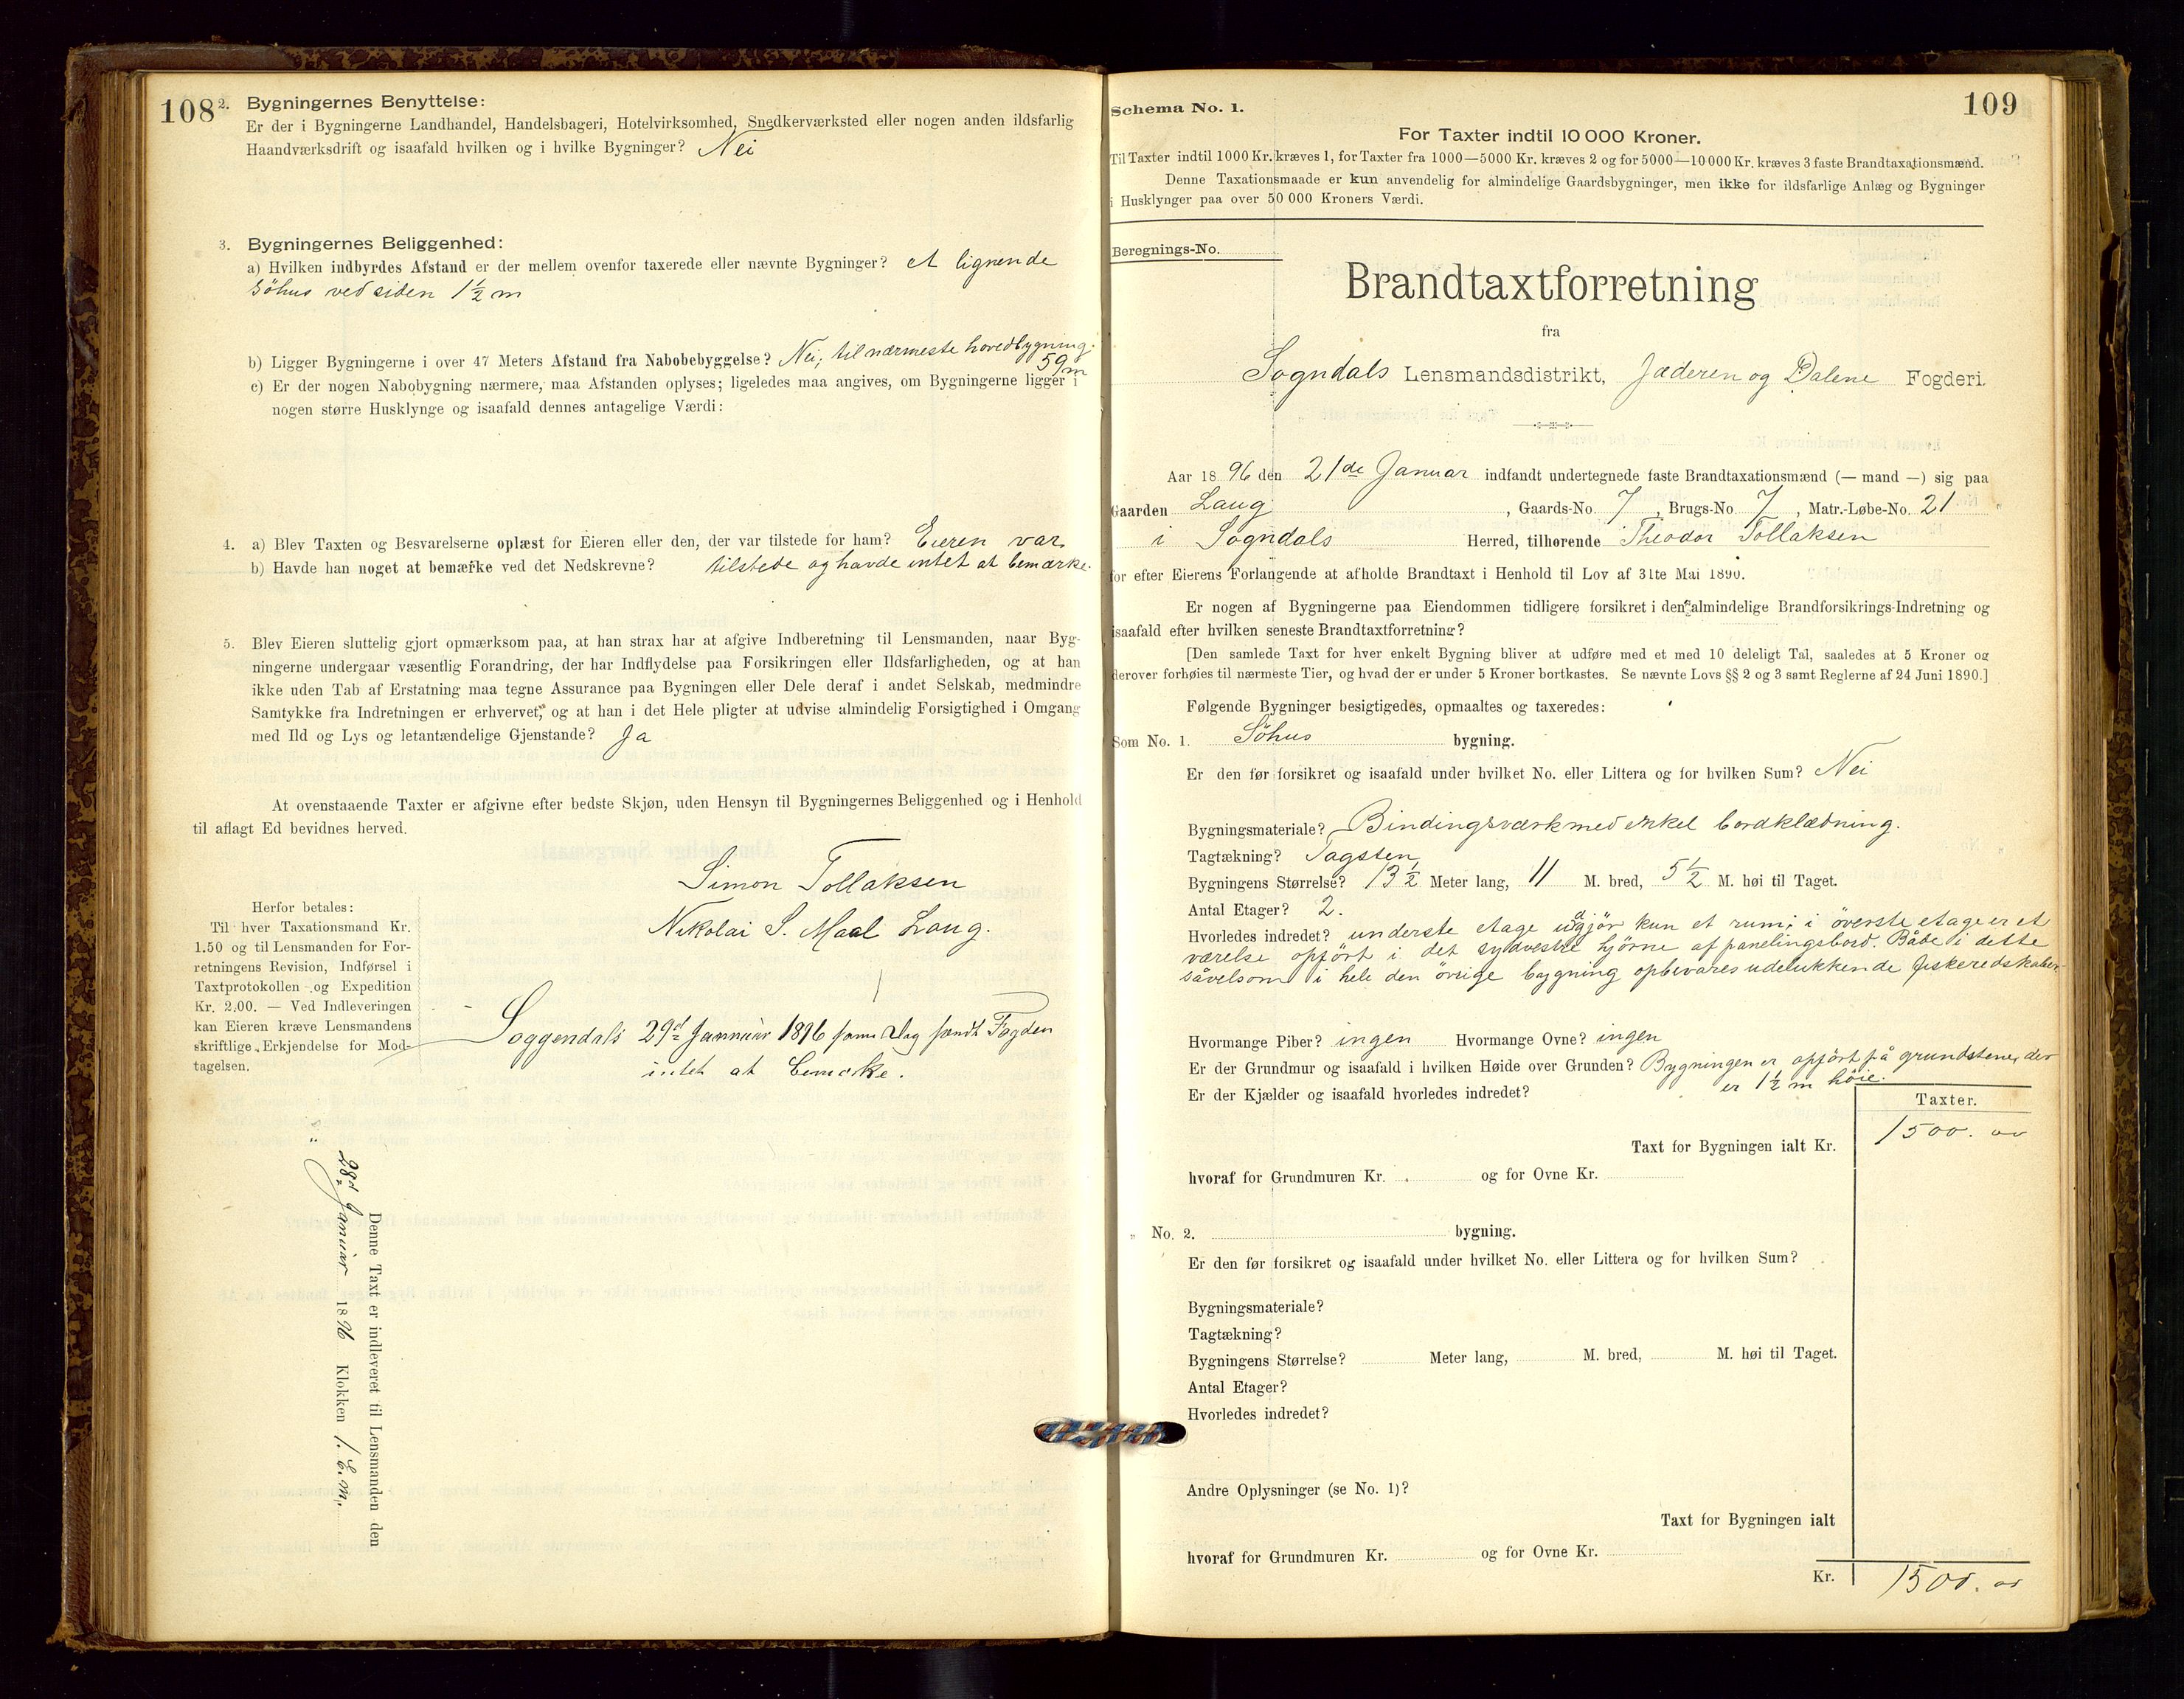 108
2. Bygningernes Benyttelse:
Er der i Bygningerne Landhandel, Handelsbageri, Hotelvirksomhed, Snedkerværksted eller nogen anden ildsfarlig
Haandværksdrift og isaafald hvilken og i hvilke Bygninger? Nei
3. Bygningernes Beliggenhed:
a) Hvilken indbyrdes Afstand er der mellem ovenfor taxerede eller nævnte Bygninger? et lignende
söhus ved siden 1½ m
b) Ligger Bygningerne i over 47 Meters Afstand fra Nabobebyggelse? Nei, til nærmeste hovedbygning
59 m
c) Er der nogen Nabobygning nærmere, maa Afstanden oplyses; ligeledes maa angives, om Bygningerne ligger i
nogen større Husklynge og isaafald dennes antagelige Værdi:
4. a) Blev Taxten og Besvarelserne oplæst for Eieren eller den, der var tilstede for ham? Eieren var
b) Havde han noget at bemærke ved det Nedskrevne? tilstede og havde intet at bemærke.
5. Blev Eieren sluttelig gjort opmærksom paa, at han strax har at afgive Indberetning til Lensmanden, naar Byg-
ningerne undergaar væsentlig Forandring, der har Indflydelse paa Forsikringen eller Ildsfarligheden, og at han
ikke uden Tab af Erstatning maa tegne Assurance paa Bygningen eller Dele deraf i andet Selskab, medmindre
Samtykke fra Indretningen er erhvervet, og at han i det Hele pligter at udvise almindelig Forsigtighed i Omgang
med Ild og Lys og letantændelige Gjenstande? Ja
At ovenstaaende Taxter er afgivne efter bedste Skjøn, uden Hensyn til Bygningernes Beliggenhed og i Henhold
til aflagt Ed bevidnes herved.
Simon Tollaksen
Nikolai S. Maal Laug.
Herfor betales:
Til hver Taxationsmand Kr.
1.50 og til Lensmanden for For-
retningens Revision, Indførsel i
Taxtprotokollen og Expedition
Kr. 2.00. — Ved Indleveringen
kan Eieren kræve Lensmandens
skriftlige Erkjendelse for Mod-
tagelsen.
Soggendals 29d Januar 1896 samme Dag sendt Fogden
intet at bemærke.
Denne Taxt er indleveret til Lensmanden den
28d Januar 1896 Klokken 1. E.m.
Schema No. 1.
109
For Taxter indtil 10 000 Kroner.
Til Taxter indtil 1000 Kr. kræves 1, for Taxter fra 1000—5000 Kr. kræves 2 og for 5000—10 000 Kr. kræves 3 faste Brandtaxationsmænd.
Denne Taxationsmaade er kun anvendelig for almindelige Gaardsbygninger, men ikke for ildsfarlige Anlæg og Bygninger
i Husklynger paa over 50 000 Kroners Værdi.
Beregnings-No.
Brandtaxtforretning
fra
Sogndals Lensmandsdistrikt, Jæderen og Dalene Fogderi.
Aar 1896 den 21de Januar indfandt undertegnede faste Brandtaxationsmænd (— mand —) sig paa
Gaarden Laug, Gaards-No. 7, Brugs-No. 7, Matr.-Løbe-No. 21
i Sogndals Herred, tilhørende Theodor Tollaksen
for efter Eierens Forlangende at afholde Brandtaxt i Henhold til Lov af 31te Mai 1890.
Er nogen af Bygningerne paa Eiendommen tidligere forsikret i den almindelige Brandforsikrings-Indretning og
isaafald efter hvilken seneste Brandtaxtforretning?
[Den samlede Taxt for hver enkelt Bygning bliver at udføre med et med 10 deleligt Tal, saaledes at 5 Kroner og
derover forhøies til nærmeste Tier, og hvad der er under 5 Kroner bortkastes. Se nævnte Lovs §§ 2 og 3 samt Reglerne af 24 Juni 1890.]
Følgende Bygninger besigtigedes, opmaaltes og taxeredes:
Som No. 1. Söhus bygning.
Er den før forsikret og isaafald under hvilket No. eller Littera og for hvilken Sum? Nei
Bygningsmateriale? Bindingsværk med enkel bordklædning.
Tagtækning? Tagsten
Bygningens Størrelse? 13½ Meter lang, 11 M. bred, 5½ M. høi til Taget.
Antal Etager? 2.
Hvorledes indredet? underste etage udgjör kun et rum; i överste etage er et
værelse opfört i det sydvestre hjörne af panelingsbord. Både i dette
såvelsom i hele den övrige bygning opbevares udelukkende fiskeredskaber
Hvormange Piber? ingen Hvormange Ovne? ingen
Er der Grundmur og isaafald i hvilken Høide over Grunden? Bygningen er opfört på grundstene, der
er 1½ m höie.
Er der Kjælder og isaafald hvorledes indredet?
Taxter.
Taxt for Bygningen ialt Kr. 1500. 00
hvoraf for Grundmuren Kr. og for Ovne Kr.
" No. 2. bygning.
Er den før forsikret og isaafald under hvilket No. eller Littera og for hvilken Sum?
Bygningsmateriale?
Tagtækning?
Bygningens Størrelse? Meter lang, M. bred, M. høi til Taget.
Antal Etager?
Hvorledes indredet?
Andre Oplysninger (se No. 1)?
Taxt for Bygningen ialt
hvoraf for Grundmuren Kr. og for Ovne Kr.
Kr. 1500. 00